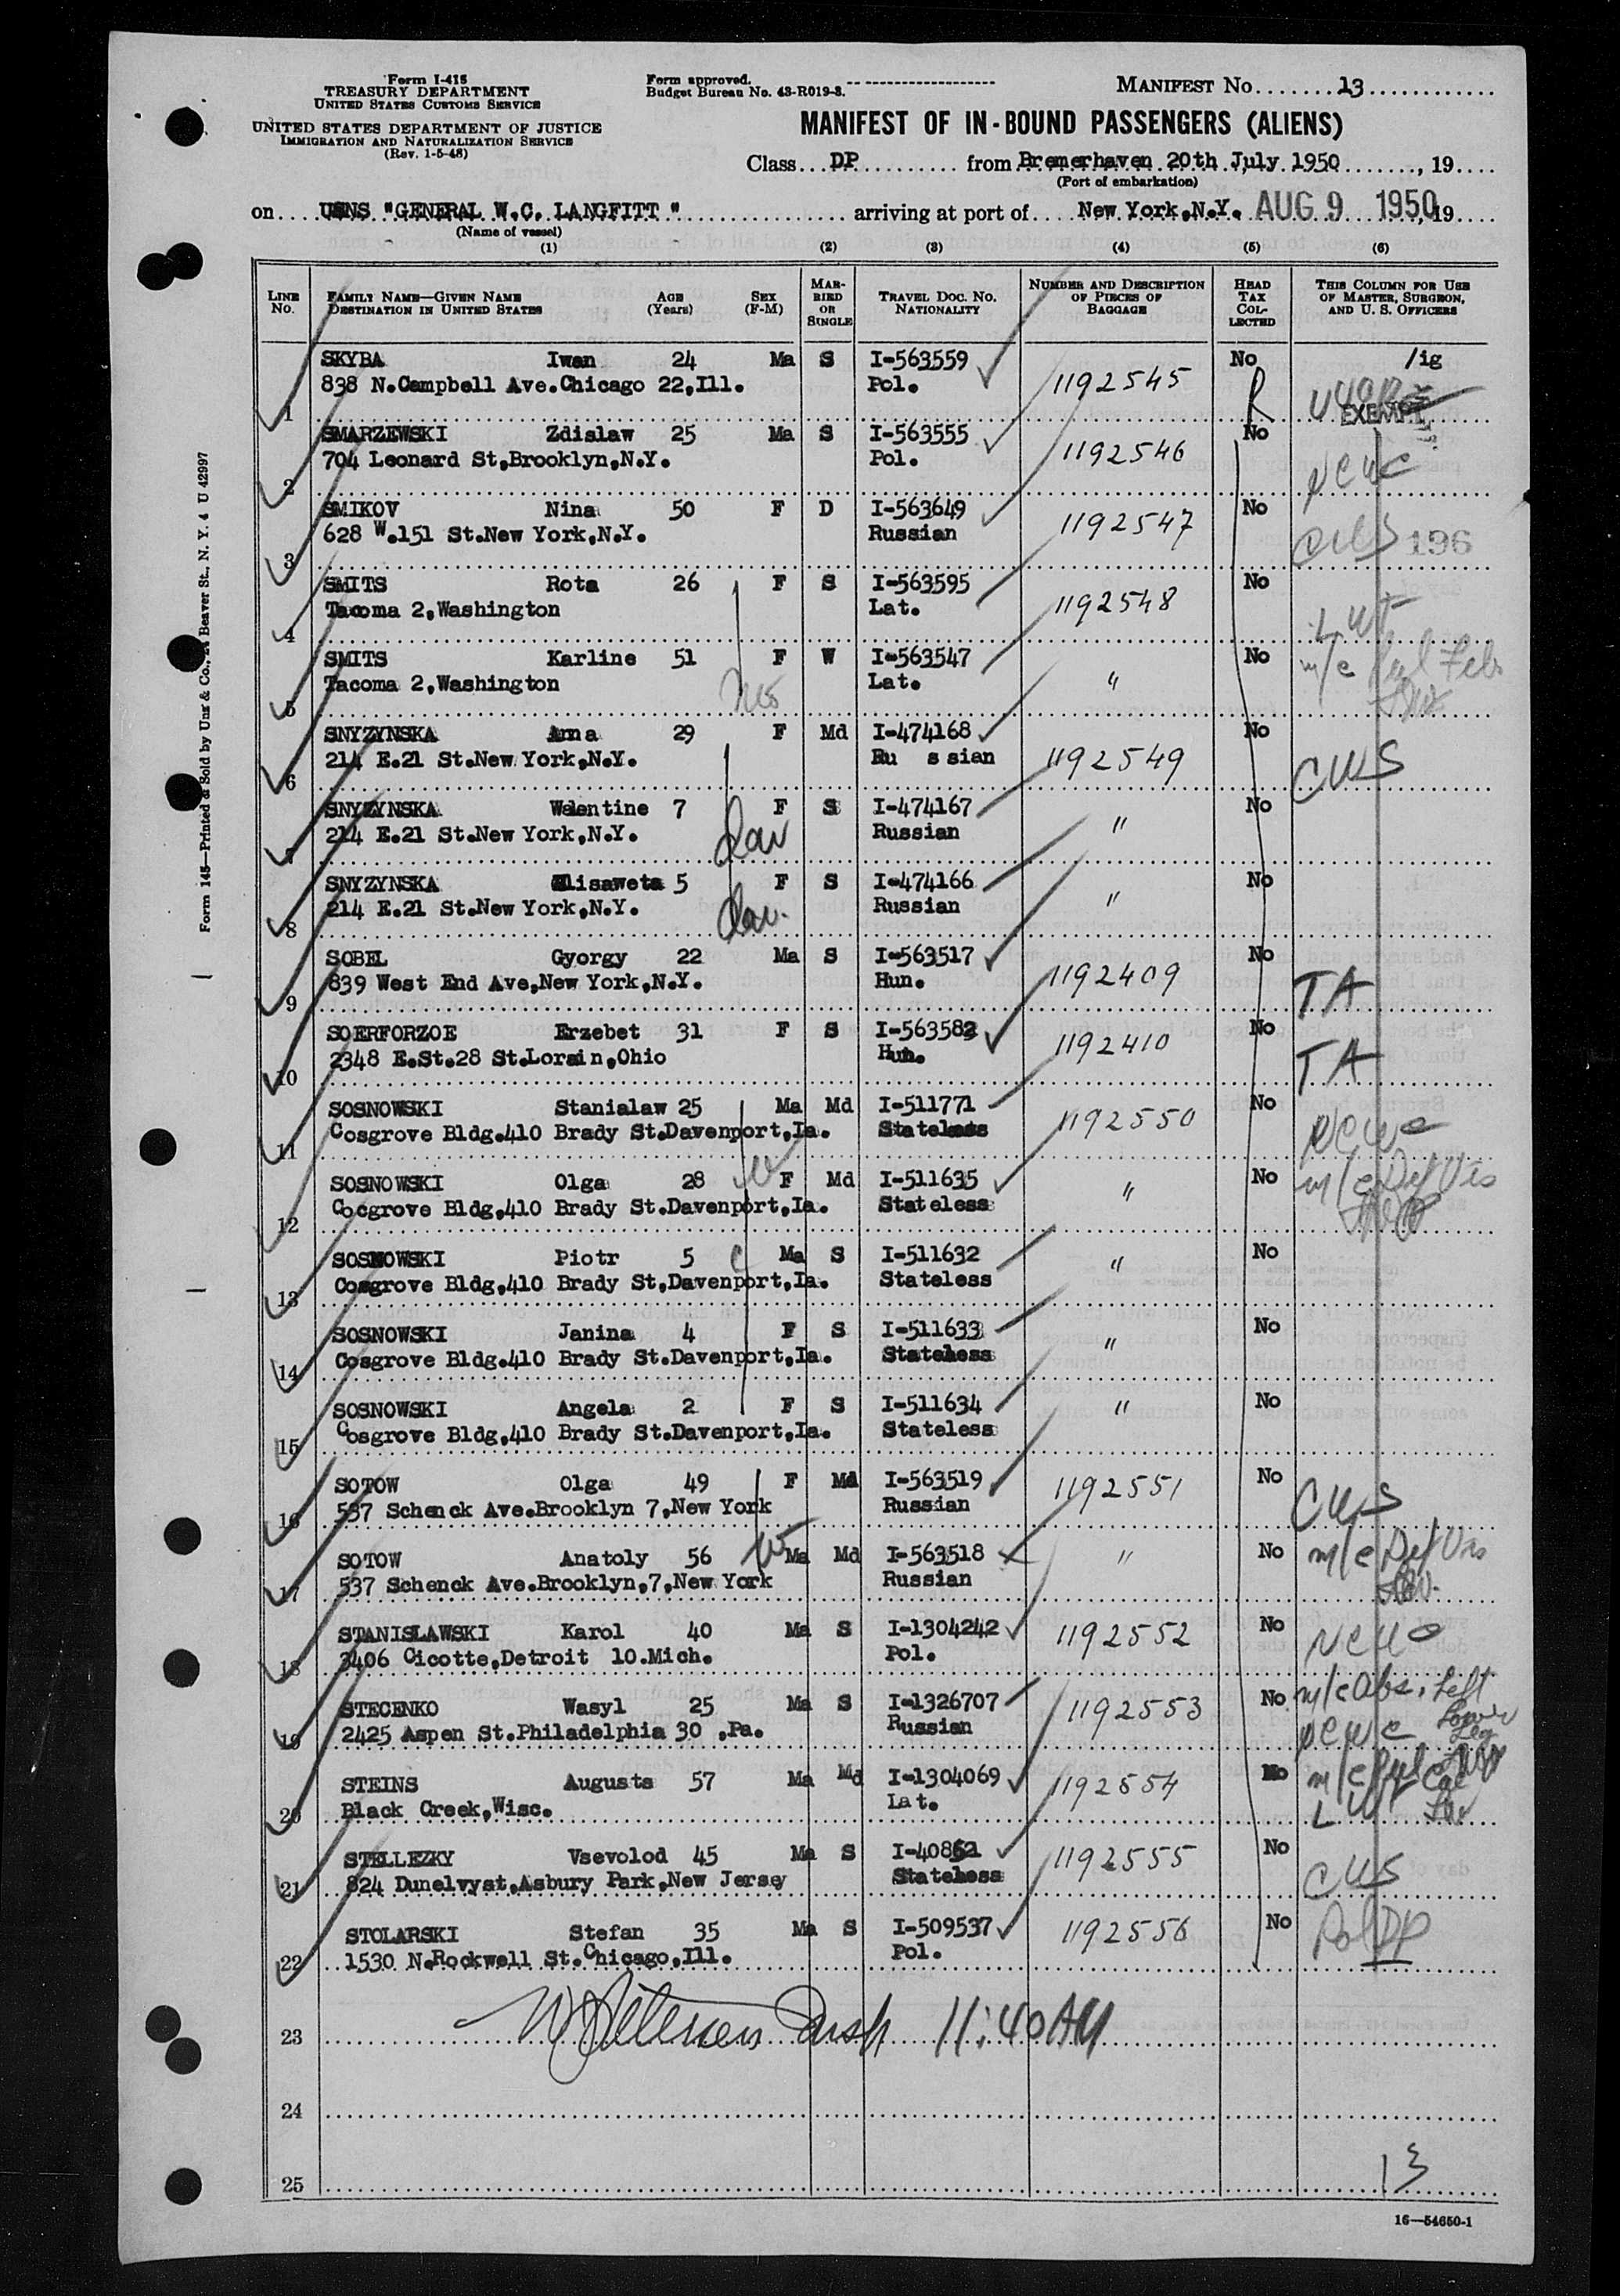 Form I-415
TREASURY DEPARTMENT
UNITED STATES CUSTOMS SERVICE
UNITED STATES DEPARTMENT OF JUSTICE
IMMIGRATION AND NATURALIZATION SERVICE
(Rev. 1-5-48)
Form approved.
Budget Bureau No. 43-R019-3.
MANIFEST No. 13
MANIFEST OF IN-BOUND PASSENGERS (ALIENS)
Class DP from Bremerhaven 20th July 1950, 19
(Port of embarkation)
on USNS "GENERAL W.C. LANGFITT" arriving at port of New York,N.Y. AUG 9 1950, 19
(Name of vessel)
(1) (2) (3) (4) (5) (6)
LINE No. FAMILY NAME—GIVEN NAME DESTINATION IN UNITED STATES AGE (Years) SEX (F-M) MARRIED OR SINGLE TRAVEL DOC. NO. NATIONALITY NUMBER AND DESCRIPTION OF PIECES OF BAGGAGE HEAD TAX COLLECTED THIS COLUMN FOR USE OF MASTER, SURGEON, AND U. S. OFFICERS
SKYBA Iwan 24 Ma S I-563559 No /ig
1 838 N.Campbell Ave.Chicago 22,Ill. Pol. 1192545 R EXEMPT
SMARZEWSKI Zdislaw 25 Ma S I-563555 No
2 704 Leonard St,Brooklyn,N.Y. Pol. 1192546 NCWC
SMIKOV Nina 50 F D I-563649 No
3 628 W.151 St.New York,N.Y. Russian 1192547 CWS 196
SMITS Rota 26 F S I-563595 No
4 Tacoma 2,Washington Lat. 1192548 LWF
SMITS Karline 51 F W I-563547 No m/c Pul Feb
5 Tacoma 2,Washington Lat. "
SNYZYNSKA Anna 29 F Md I-474168 No
6 214 E.21 St.New York,N.Y. Ru s sian 1192549 CWS
SNYZYNSKA Walentine 7 F S I-474167 No
7 214 E.21 St.New York,N.Y. Russian "
SNYZYNSKA Elisaweta 5 F S I-474166 No
8 214 E.21 St.New York,N.Y. Russian "
SOBEL Gyorgy 22 Ma S I-563517 No
9 839 West End Ave,New York,N.Y. Hun. 1192409 TA
SOERFORZOE Erzebet 31 F S I-563582 No
10 2348 E.St.28 St.Lorain,Ohio Hun. 1192410 TA
SOSNOWSKI Stanialaw 25 Ma Md I-511771 No
11 Cosgrove Bldg.410 Brady St.Davenport,Ia. Stateless 1192550 NCWC
SOSNOWSKI Olga 28 F Md I-511635 No m/c Def Vis
12 Cocgrove Bldg,410 Brady St.Davenport,Ia. Stateless "
SOSNOWSKI Piotr 5 Ma S I-511632 No
13 Cosgrove Bldg,410 Brady St,Davenport,Ia. Stateless "
SOSNOWSKI Janina 4 F S I-511633 No
14 Cosgrove Bldg.410 Brady St.Davenport,Ia. Stateless "
SOSNOWSKI Angela 2 F S I-511634 No
15 Cosgrove Bldg,410 Brady St.Davenport,Ia. Stateless "
SOTOW Olga 49 F Md I-563519 No
16 537 Schenck Ave.Brooklyn 7,New York Russian 1192551 CWS
SOTOW Anatoly 56 Ma Md I-563518 No m/c Def Vis
17 537 Schenck Ave.Brooklyn,7,New York Russian "
STANISLAWSKI Karol 40 Ma S I-1304242 No
18 3406 Cicotte,Detroit 10.Mich. Pol. 1192552 NCWC
STECENKO Wasyl 25 Ma S I-1326707 No m/c Abs. Left Lower Leg
19 2425 Aspen St.Philadelphia 30 ,Pa. Russian 1192553 NCWC
STEINS Augusts 57 Ma Md I-1304069 No m/c Pul Cal
20 Black Creek,Wisc. Lat. 1192554 LWF
STELLEZKY Vsevolod 45 Ma S I-40862 No
21 824 Dunelvyst,Asbury Park,New Jersey Stateless 1192555 CWS
STOLARSKI Stefan 35 Ma S I-509537 No
22 1530 N.Rockwell St.Chicago,Ill. Pol. 1192556 Pol DP
23 11:40 AM
24
25 13
16—54650-1
Form 145—Printed & Sold by Unz & Co., 24 Beaver St., N. Y. 4 U 42997